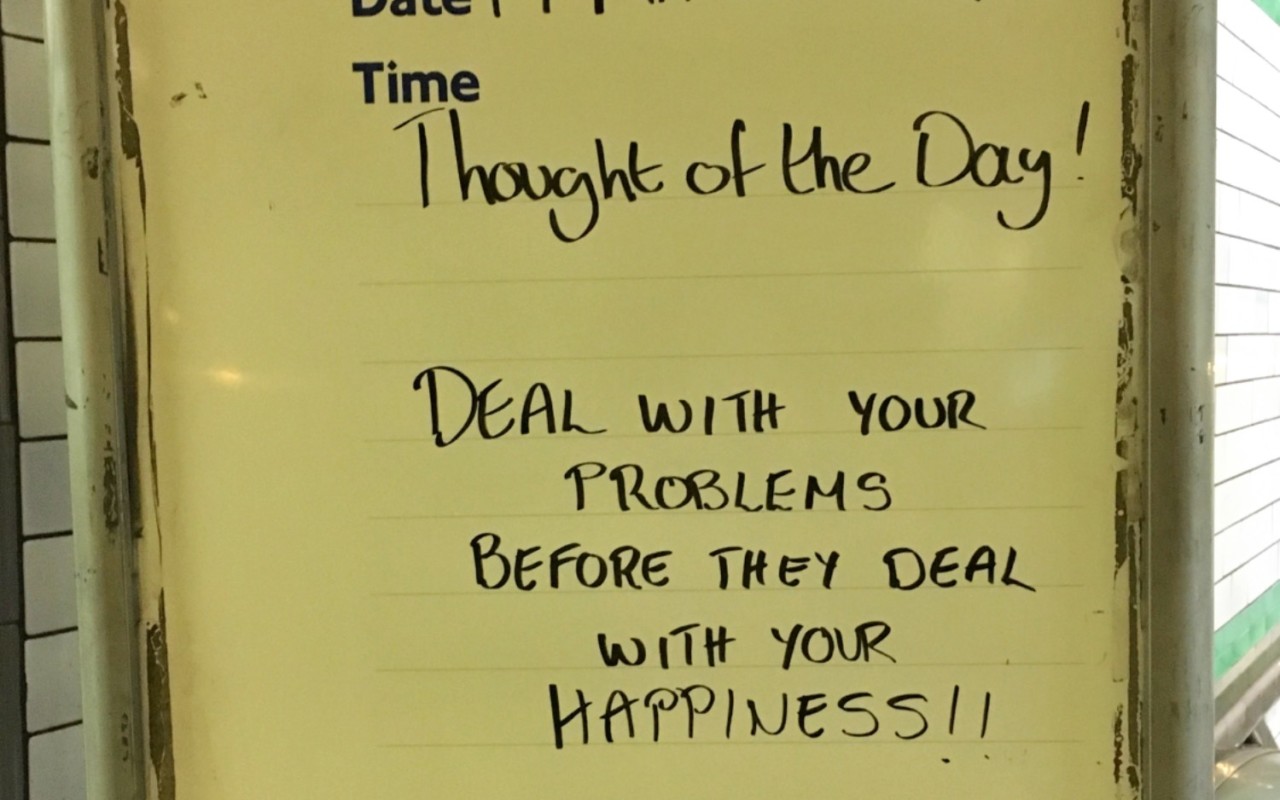 Date
Time
Thought of the Day!
DEAL WITH YOUR
PROBLEMS
BEFORE THEY DEAL
WITH YOUR
HAPPINESS!!